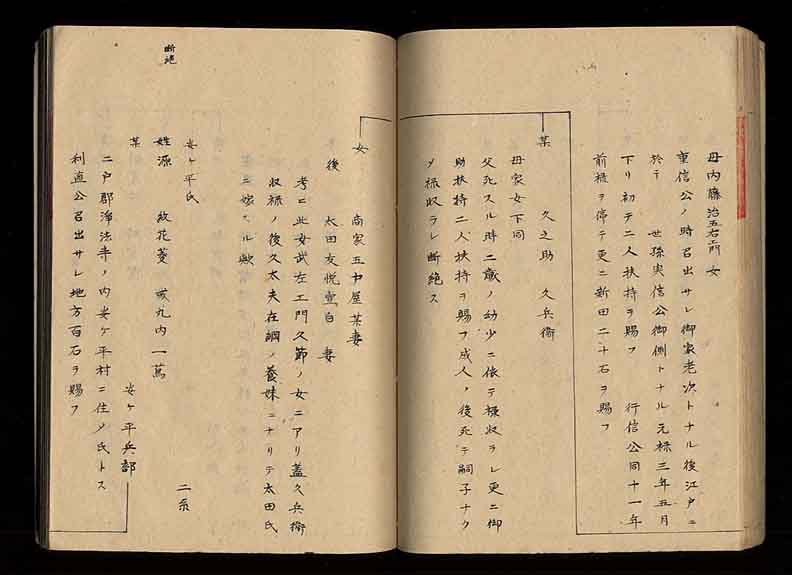 母内藤治五右エ門女
重信公ノ時召出サレ御家老次トナル後江戸ニ
於テ 世孫実信公御側トナル元禄三年五月
下リ初テ二人扶持ヲ賜フ 行信公同十一年
前禄ヲ停テ更ニ新田二十石ヲ賜フ
某 久之助 久兵衛
母家女下同
父死スル時二歳ノ幼少ニ依テ禄収ラレ更ニ御
助扶持二人扶持ヲ賜フ成人ノ後死テ嗣子ナク
〆禄収ラレ断絶ス
女 商家五戸屋某妻
後 太田友悦重自 妻
考ニ此女武左エ門久節ノ女ニアリ蓋久兵衛
収禄ノ後久太夫在綱ノ養妹ニナリテ太田氏
ニ嫁スル歟
断絶
安ケ平氏 二系
姓源 紋花菱 或丸内一蔦
某 安ケ平兵部
二戸郡浄法寺ノ内安ケ平村ニ住〆氏トス
利直公召出サレ地方百石ヲ賜フ